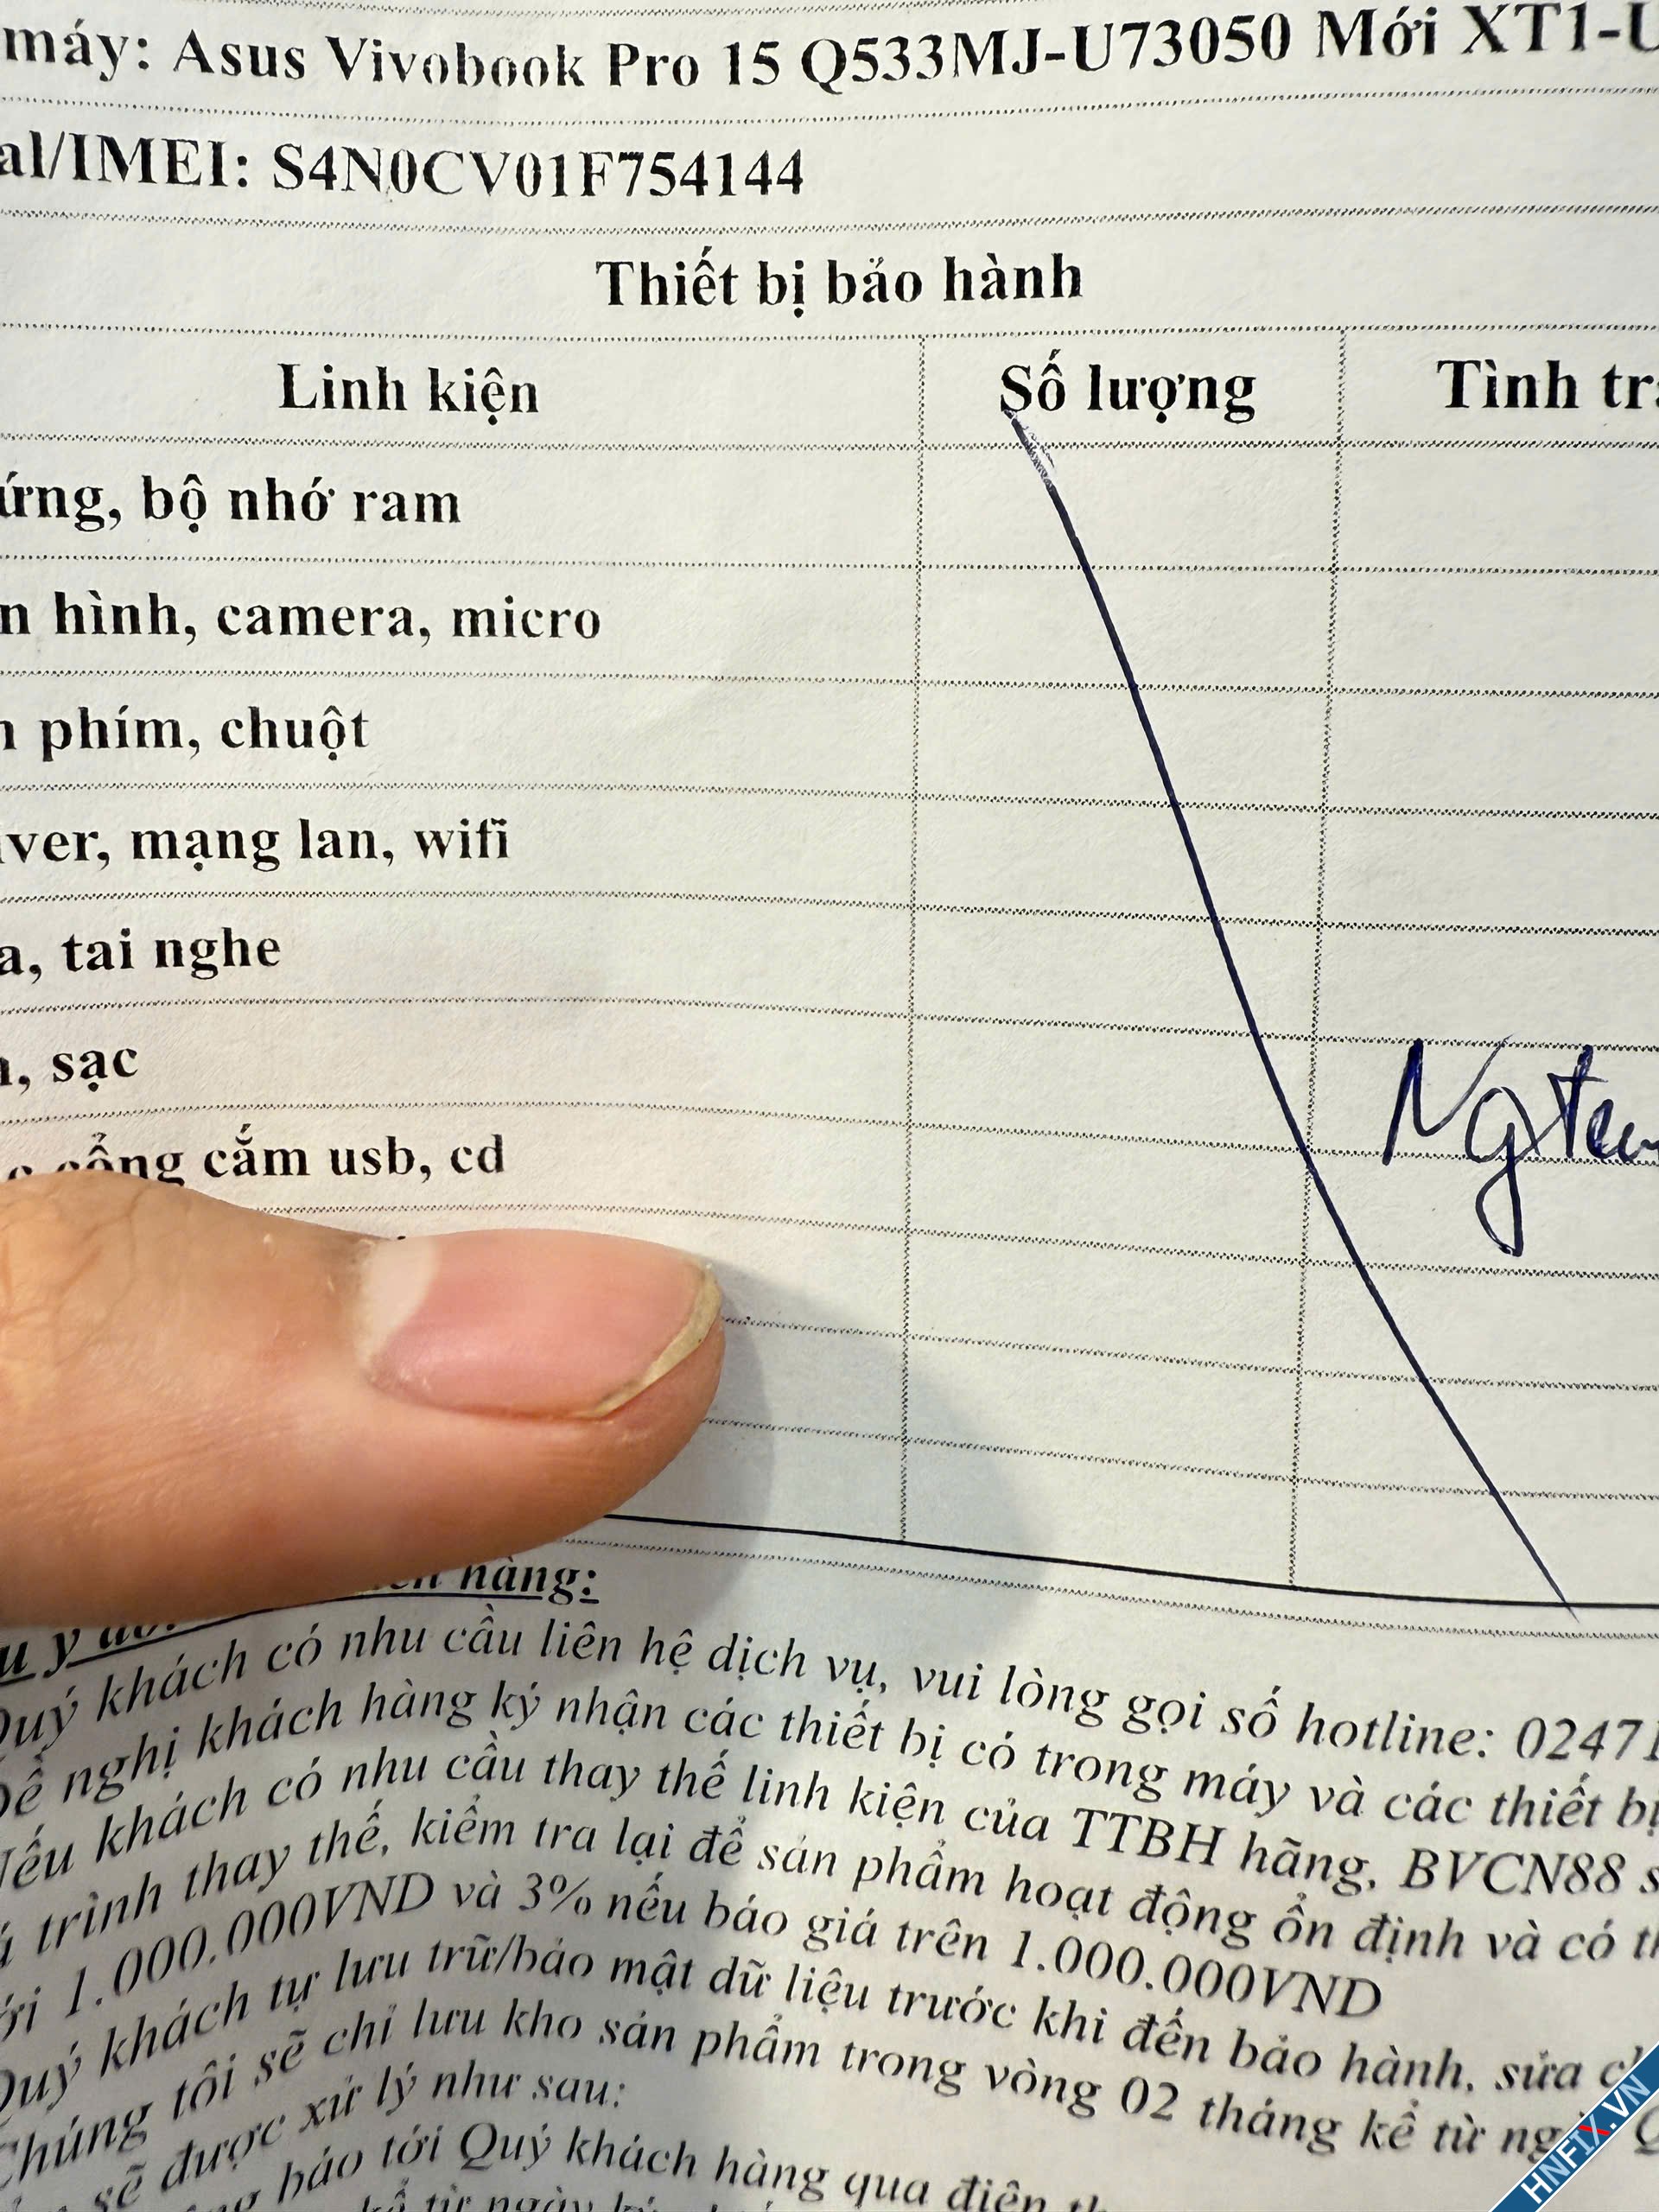 máy: Asus Vivobook Pro 15 Q533MJ-U73050 Mới XT1-U
al/IMEI: S4N0CV01F754144
Thiết bị bảo hành
Linh kiện Số lượng Tình tr
ứng, bộ nhớ ram
n hình, camera, micro
n phím, chuột
iver, mạng lan, wifi
a, tai nghe
n, sạc
cổng cắm usb, cd
Ng
hàng:
Quý khách có nhu cầu liên hệ dịch vụ, vui lòng gọi số hotline: 02471
Đề nghị khách hàng ký nhận các thiết bị có trong máy và các thiết bị
Nếu khách có nhu cầu thay thế linh kiện của TTBH hãng, BVCN88 s
trình thay thế, kiểm tra lại để sản phẩm hoạt động ổn định và có th
ới 1.000.000VND và 3% nếu báo giá trên 1.000.000VND
Quý khách tự lưu trữ/bảo mật dữ liệu trước khi đến bảo hành, sửa c
Chúng tôi sẽ chỉ lưu kho sản phẩm trong vòng 02 tháng kể từ ng Q
sẽ được xử lý như sau:
báo tới Quý khách hàng qua điện th
kể từ ngày
HNFIX.VN